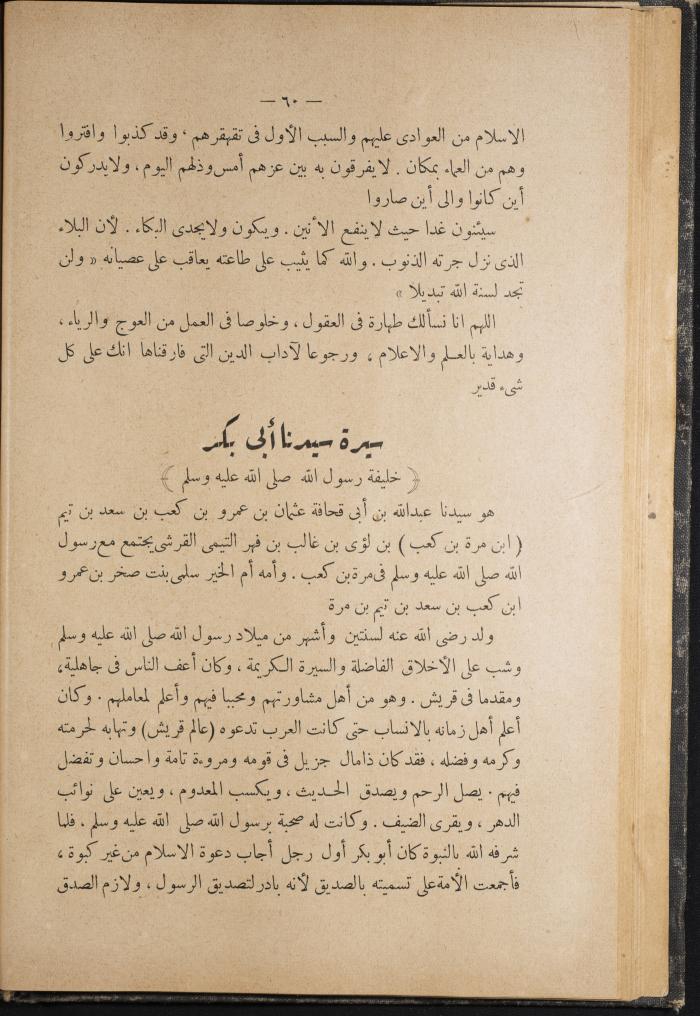 — ٦٠ —
الاسلام من العوادى عليهم والسبب الأول فى تقهقرهم ، وقد كذبوا وافتروا
وهم من العماء بمكان . لا يفرقون به بين عزهم أمس وذلهم اليوم ، ولا يدركون
أين كانوا والى أين صاروا
سيئنون غدا حيث لا ينفع الأنين . ويبكون ولا يجدى البكاء . لأن البلاء
الذى نزل جرته الذنوب . والله كما يثيب على طاعته يعاقب على عصيانه « ولن
تجد لسنة الله تبديلا »
اللهم انا نسألك طهارة فى العقول ، وخلوصا فى العمل من العوج والرياء ،
وهداية بالعلم والاعلام ، ورجوعا لآداب الدين التى فارقناها انك على كل
شىء قدير
سيرة سيدنا أبى بكر
( خليفة رسول الله صلى الله عليه وسلم )
هو سيدنا عبدالله بن أبى قحافة عثمان بن عمرو بن كعب بن سعد بن تيم
( ابن مرة بن كعب ) بن لؤى بن غالب بن فهر التيمى القرشى يجتمع مع رسول
الله صلى الله عليه وسلم فى مرة بن كعب . وأمه أم الخير سلمى بنت صخر بن عمرو
ابن كعب بن سعد بن تيم بن مرة
ولد رضى الله عنه لسنتين وأشهر من ميلاد رسول الله صلى الله عليه وسلم
وشب على الأخلاق الفاضلة والسيرة الكريمة ، وكان أعف الناس فى جاهلية،
ومقدما فى قريش . وهو من أهل مشاورتهم ومحببا فيهم وأعلم لمعاملهم . وكان
أعلم أهل زمانه بالانساب حتى كانت العرب تدعوه (عالم قريش) وتهابه لحرمته
وكرمه وفضله ، فقد كان ذا مال جزيل فى قومه ومروءة تامة واحسان وتفضل
فيهم . يصل الرحم ويصدق الحديث ، ويكسب المعدوم ، ويعين على نوائب
الدهر ، ويقرى الضيف . وكانت له صحبة برسول الله صلى الله عليه وسلم ، فلما
شرفه الله بالنبوة كان أبو بكر أول رجل أجاب دعوة الاسلام من غير كبوة ،
فأجمعت الأمة على تسميته بالصديق لأنه بادر لتصديق الرسول ، ولازم الصدق